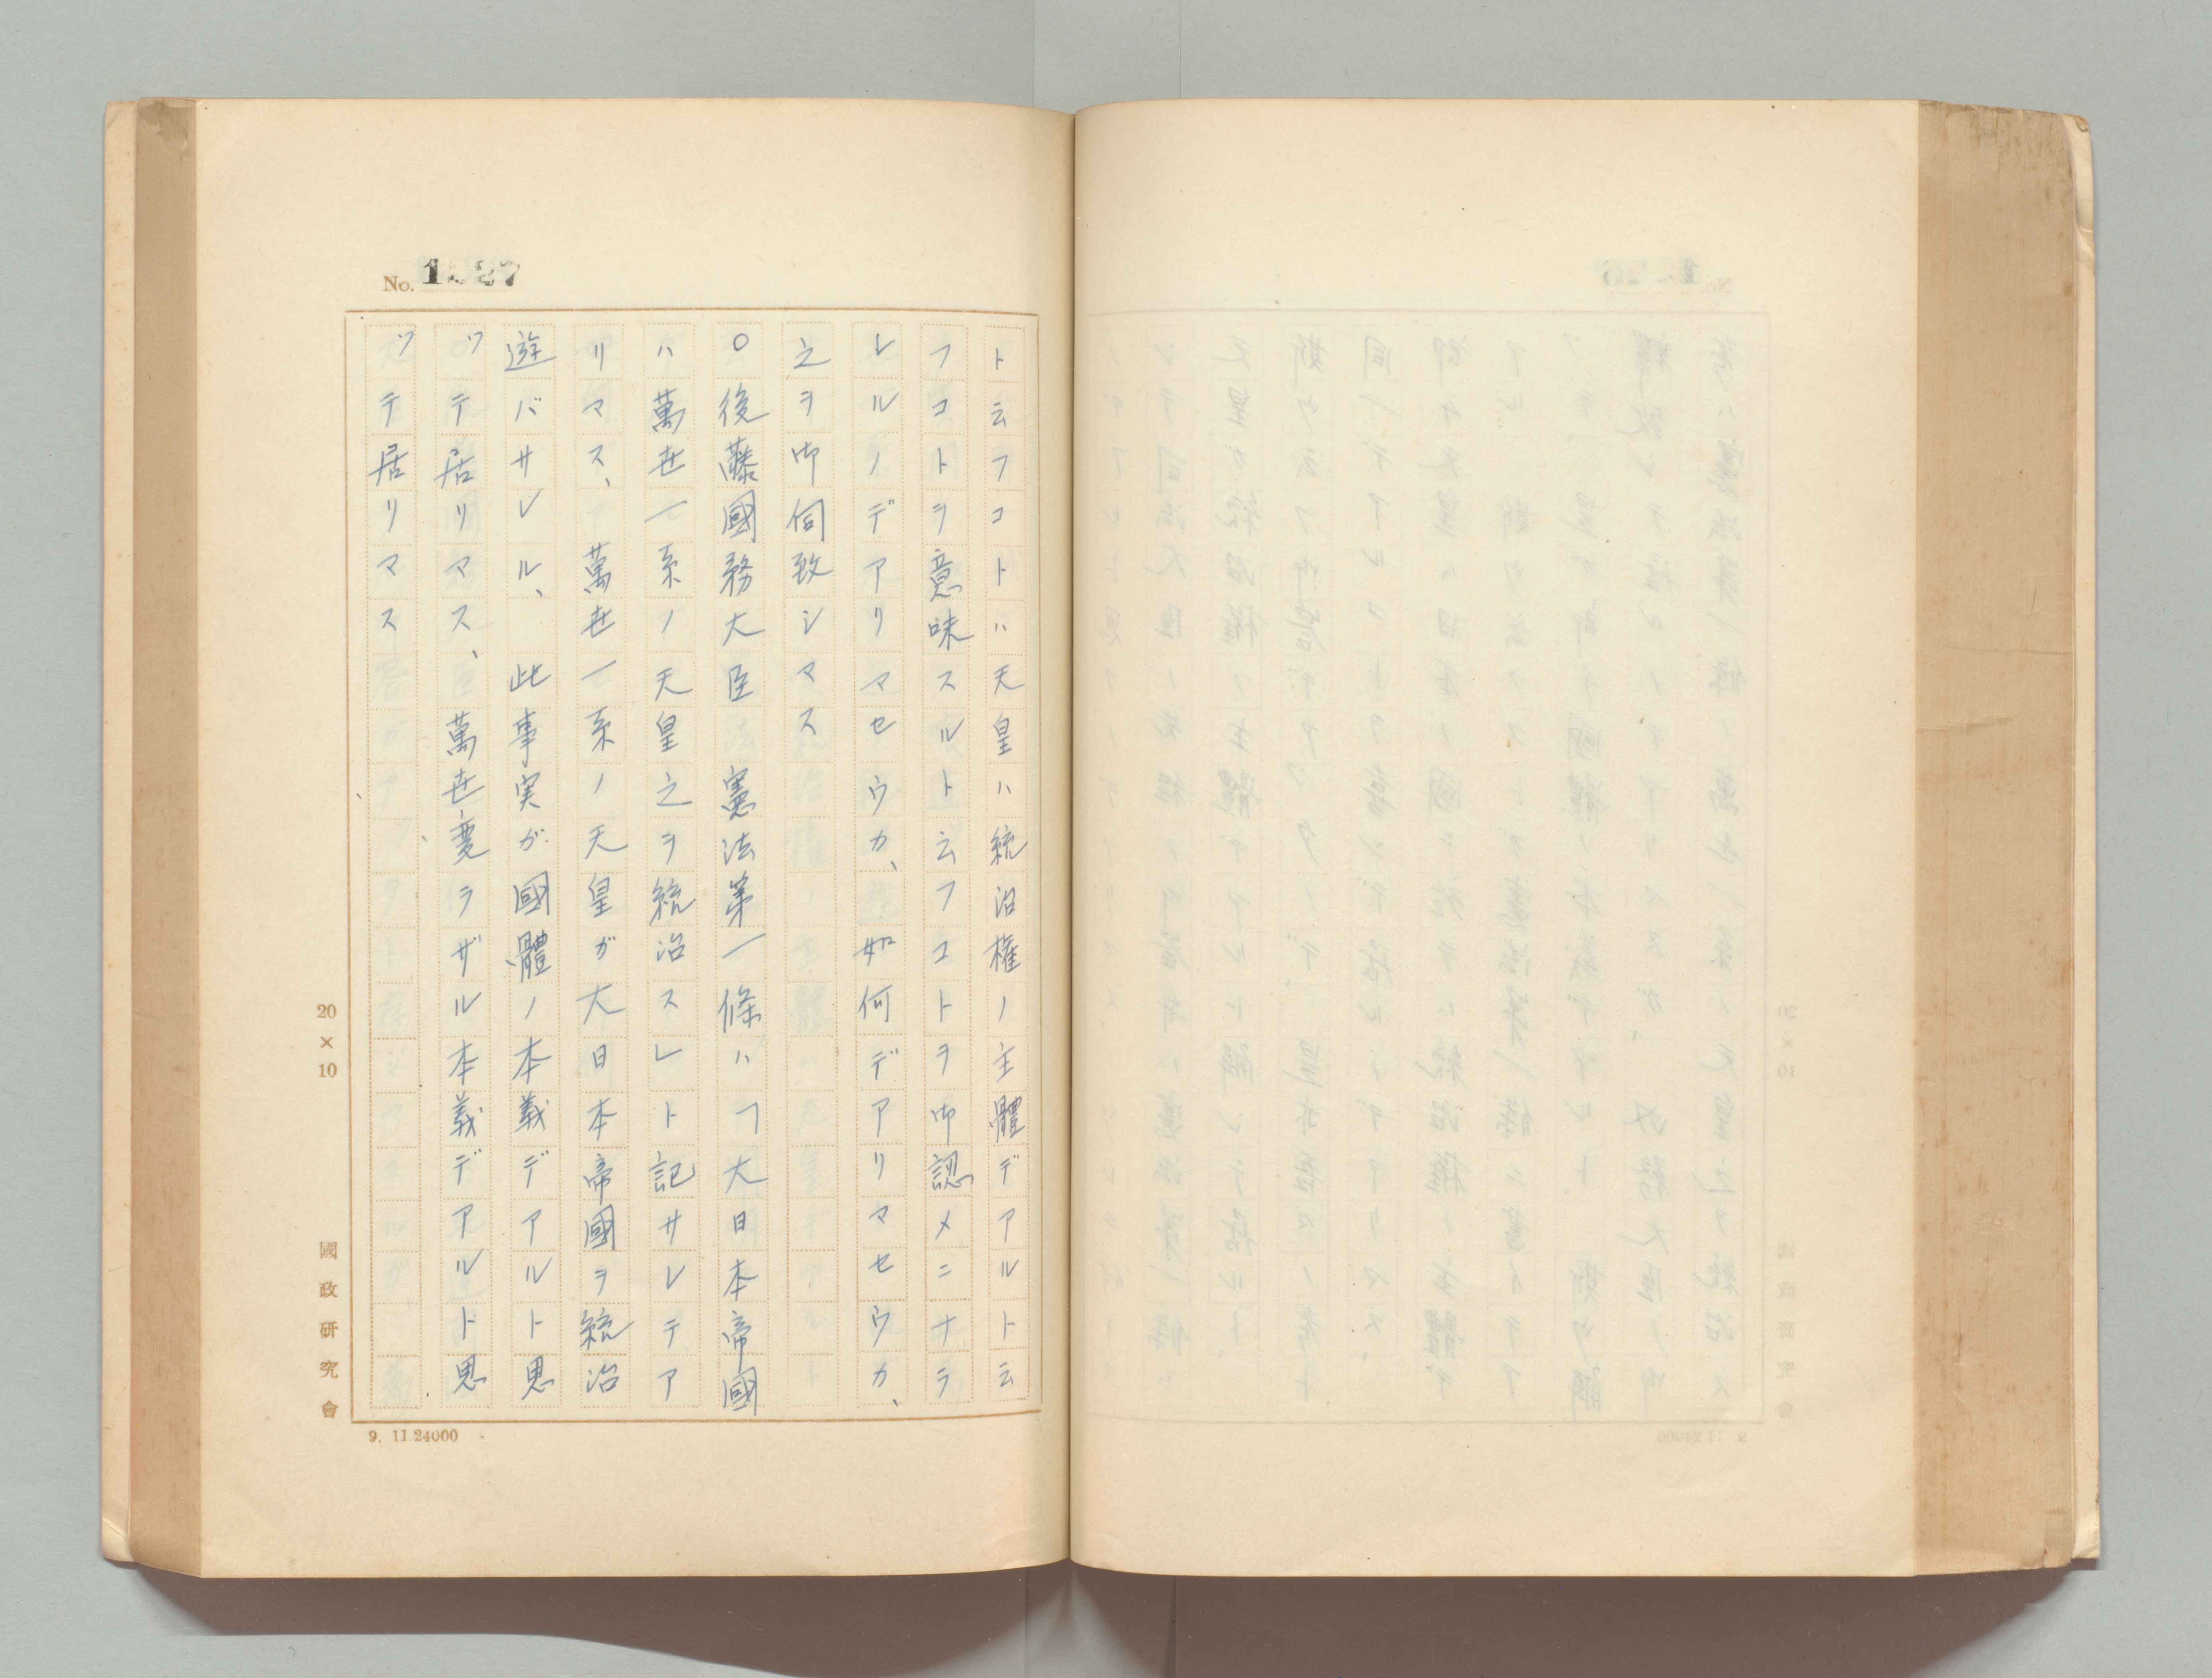 No. 1227
ト云フコトハ天皇ハ統治權ノ主體デアルト云
フコトヲ意味スルト云フコトヲ御認メニナラ
レルノデアリマセウカ、如何デアリマセウカ、
之ヲ御伺致シマス
○後藤國務大臣 憲法第一條ハ「大日本帝國
ハ萬世一系ノ天皇之ヲ統治スレト記サレテア
リマス、萬世一系ノ天皇ガ大日本帝國ヲ統治
遊バサレル、此事実ガ國體ノ本義デアルト思
ツテ居リマス、萬世変ラザル本義デアルト思
ツテ居リマス
20×10
國政研究會
9. 11 24000